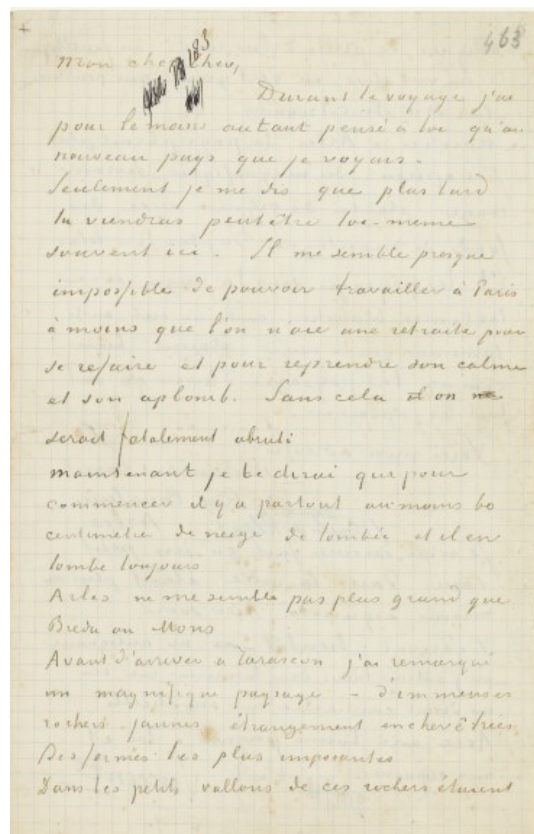 463
mon cher Theo,
Durant le voyage j'ai
pour le moins autant pensé à toi qu'au
nouveau pays que je voyais.
Seulement je me dis que plus tard
tu viendras peut être toi-meme
souvent ici. Il me semble presque
impossible de pouvoir travailler à Paris
à moins que l'on n'aie une retraite pour
se refaire et pour reprendre son calme
et son aplomb. Sans cela on
serait fatalement abruti
maintenant je te dirai que pour
commencer il y a partout au moins 60
centimètres de neige de tombée et il en
tombe toujours
Arles ne me semble pas plus grand que
Breda ou Mons
Avant d'arriver à Tarascon j'ai remarqué
un magnifique paysage – d'immenses
rochers jaunes étrangement enchevêtrés
des formes les plus imposantes
Dans les petits vallons de ces rochers étaient